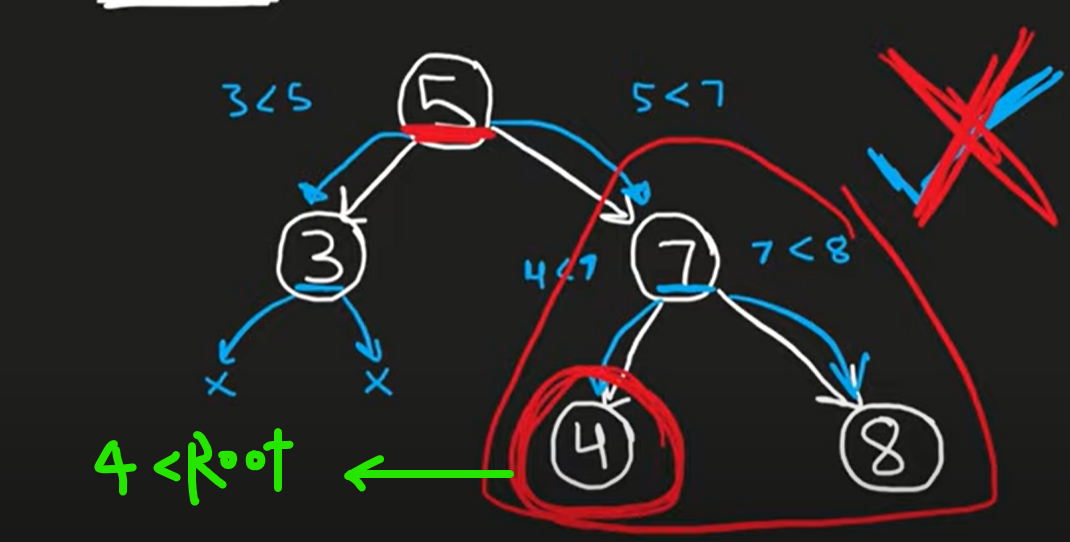 3<5
5
5<7
3
4<7
7
7<8
x
x
4
8
4 <Root